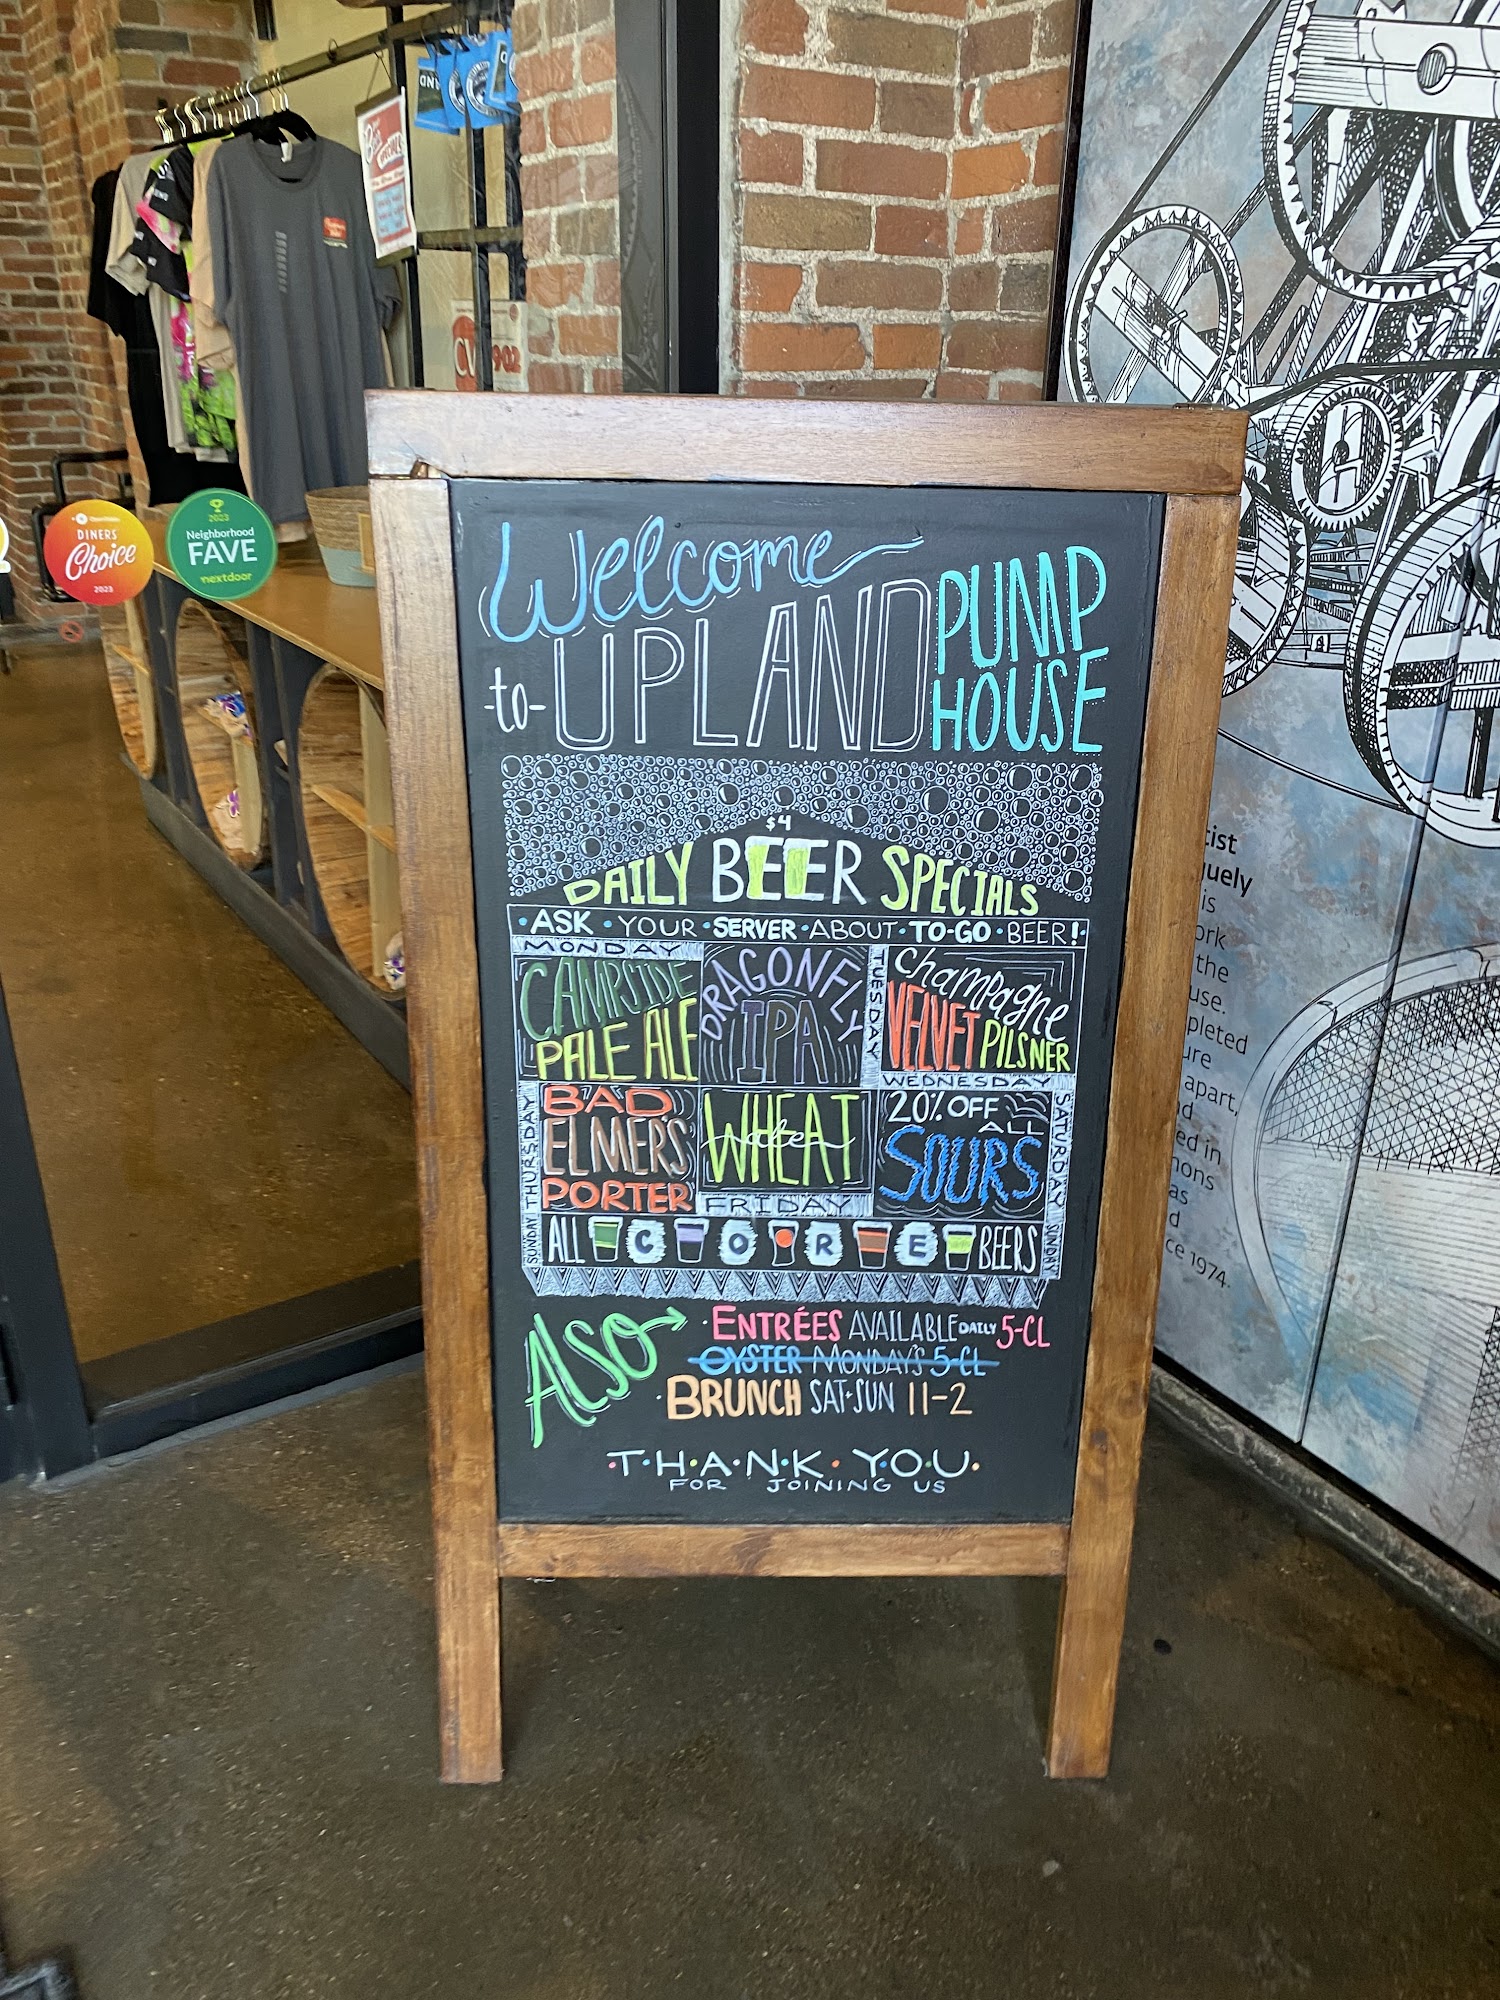 Welcome
-to- UPLAND PUMP HOUSE
$4
DAILY BEER SPECIALS
• ASK • YOUR • SERVER • ABOUT • TO-GO • BEER!•
MONDAY
CAMPSIDE
PALE ALE
DRAGONFLY
IPA
TUESDAY
Champagne
VELVET PILSNER
WEDNESDAY
THURSDAY
BAD
ELMER'S
PORTER
WHEAT
ale
FRIDAY
20% OFF
ALL
SOURS
SATURDAY
SUNDAY
ALL CORE BEERS
SUNDAY
ALSO →
• ENTRÉES AVAILABLE DAILY 5-CL
OYSTER MONDAY'S 5-CL
• BRUNCH SAT+SUN 11-2
•T•H•A•N•K• Y•O•U•
FOR JOINING US
DINERS'
Choice
2023
2023
Neighborhood
FAVE
nextdoor
tist
uely
is
ork
the
use.
pleted
ure
apart,
d
ed in
mons
as
d
ce 1974.